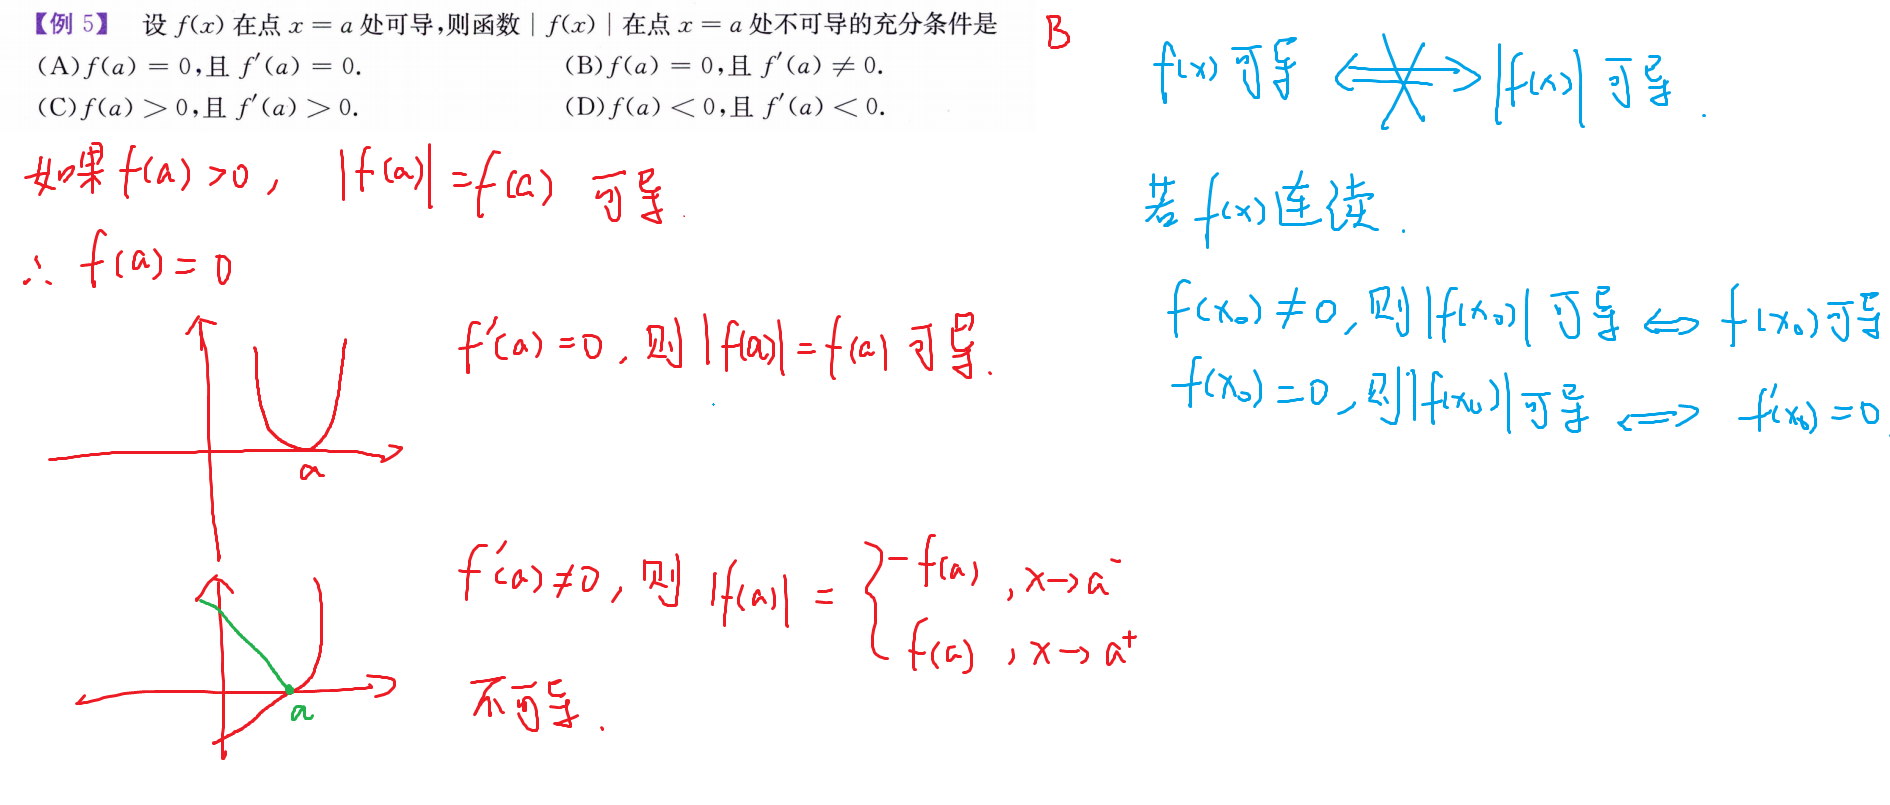 【例 5】 设 f(x) 在点 x = a 处可导,则函数 | f(x) | 在点 x = a 处不可导的充分条件是
(A) f(a) = 0,且 f′(a) = 0.
(B) f(a) = 0,且 f′(a) ≠ 0.
(C) f(a) > 0,且 f′(a) > 0.
(D) f(a) < 0,且 f′(a) < 0.
B
如果 f(a) >0, |f(a)| = f(a) 可导.
∴ f(a) = 0
a
f′(a) =0, 则 |f(a)| = f(a) 可导.
a
f′(a) ≠0, 则 |f(a)| = { -f(a), x→a⁻
f(a), x→a⁺
不可导.
f(x) 可导 ⟺ |f(x)| 可导.
若 f(x) 连续.
f(x₀) ≠ 0, 则 |f(x₀)| 可导 ⟺ f(x₀) 可导
f(x₀) = 0, 则 |f(x₀)| 可导 ⟺ f′(x₀) = 0.